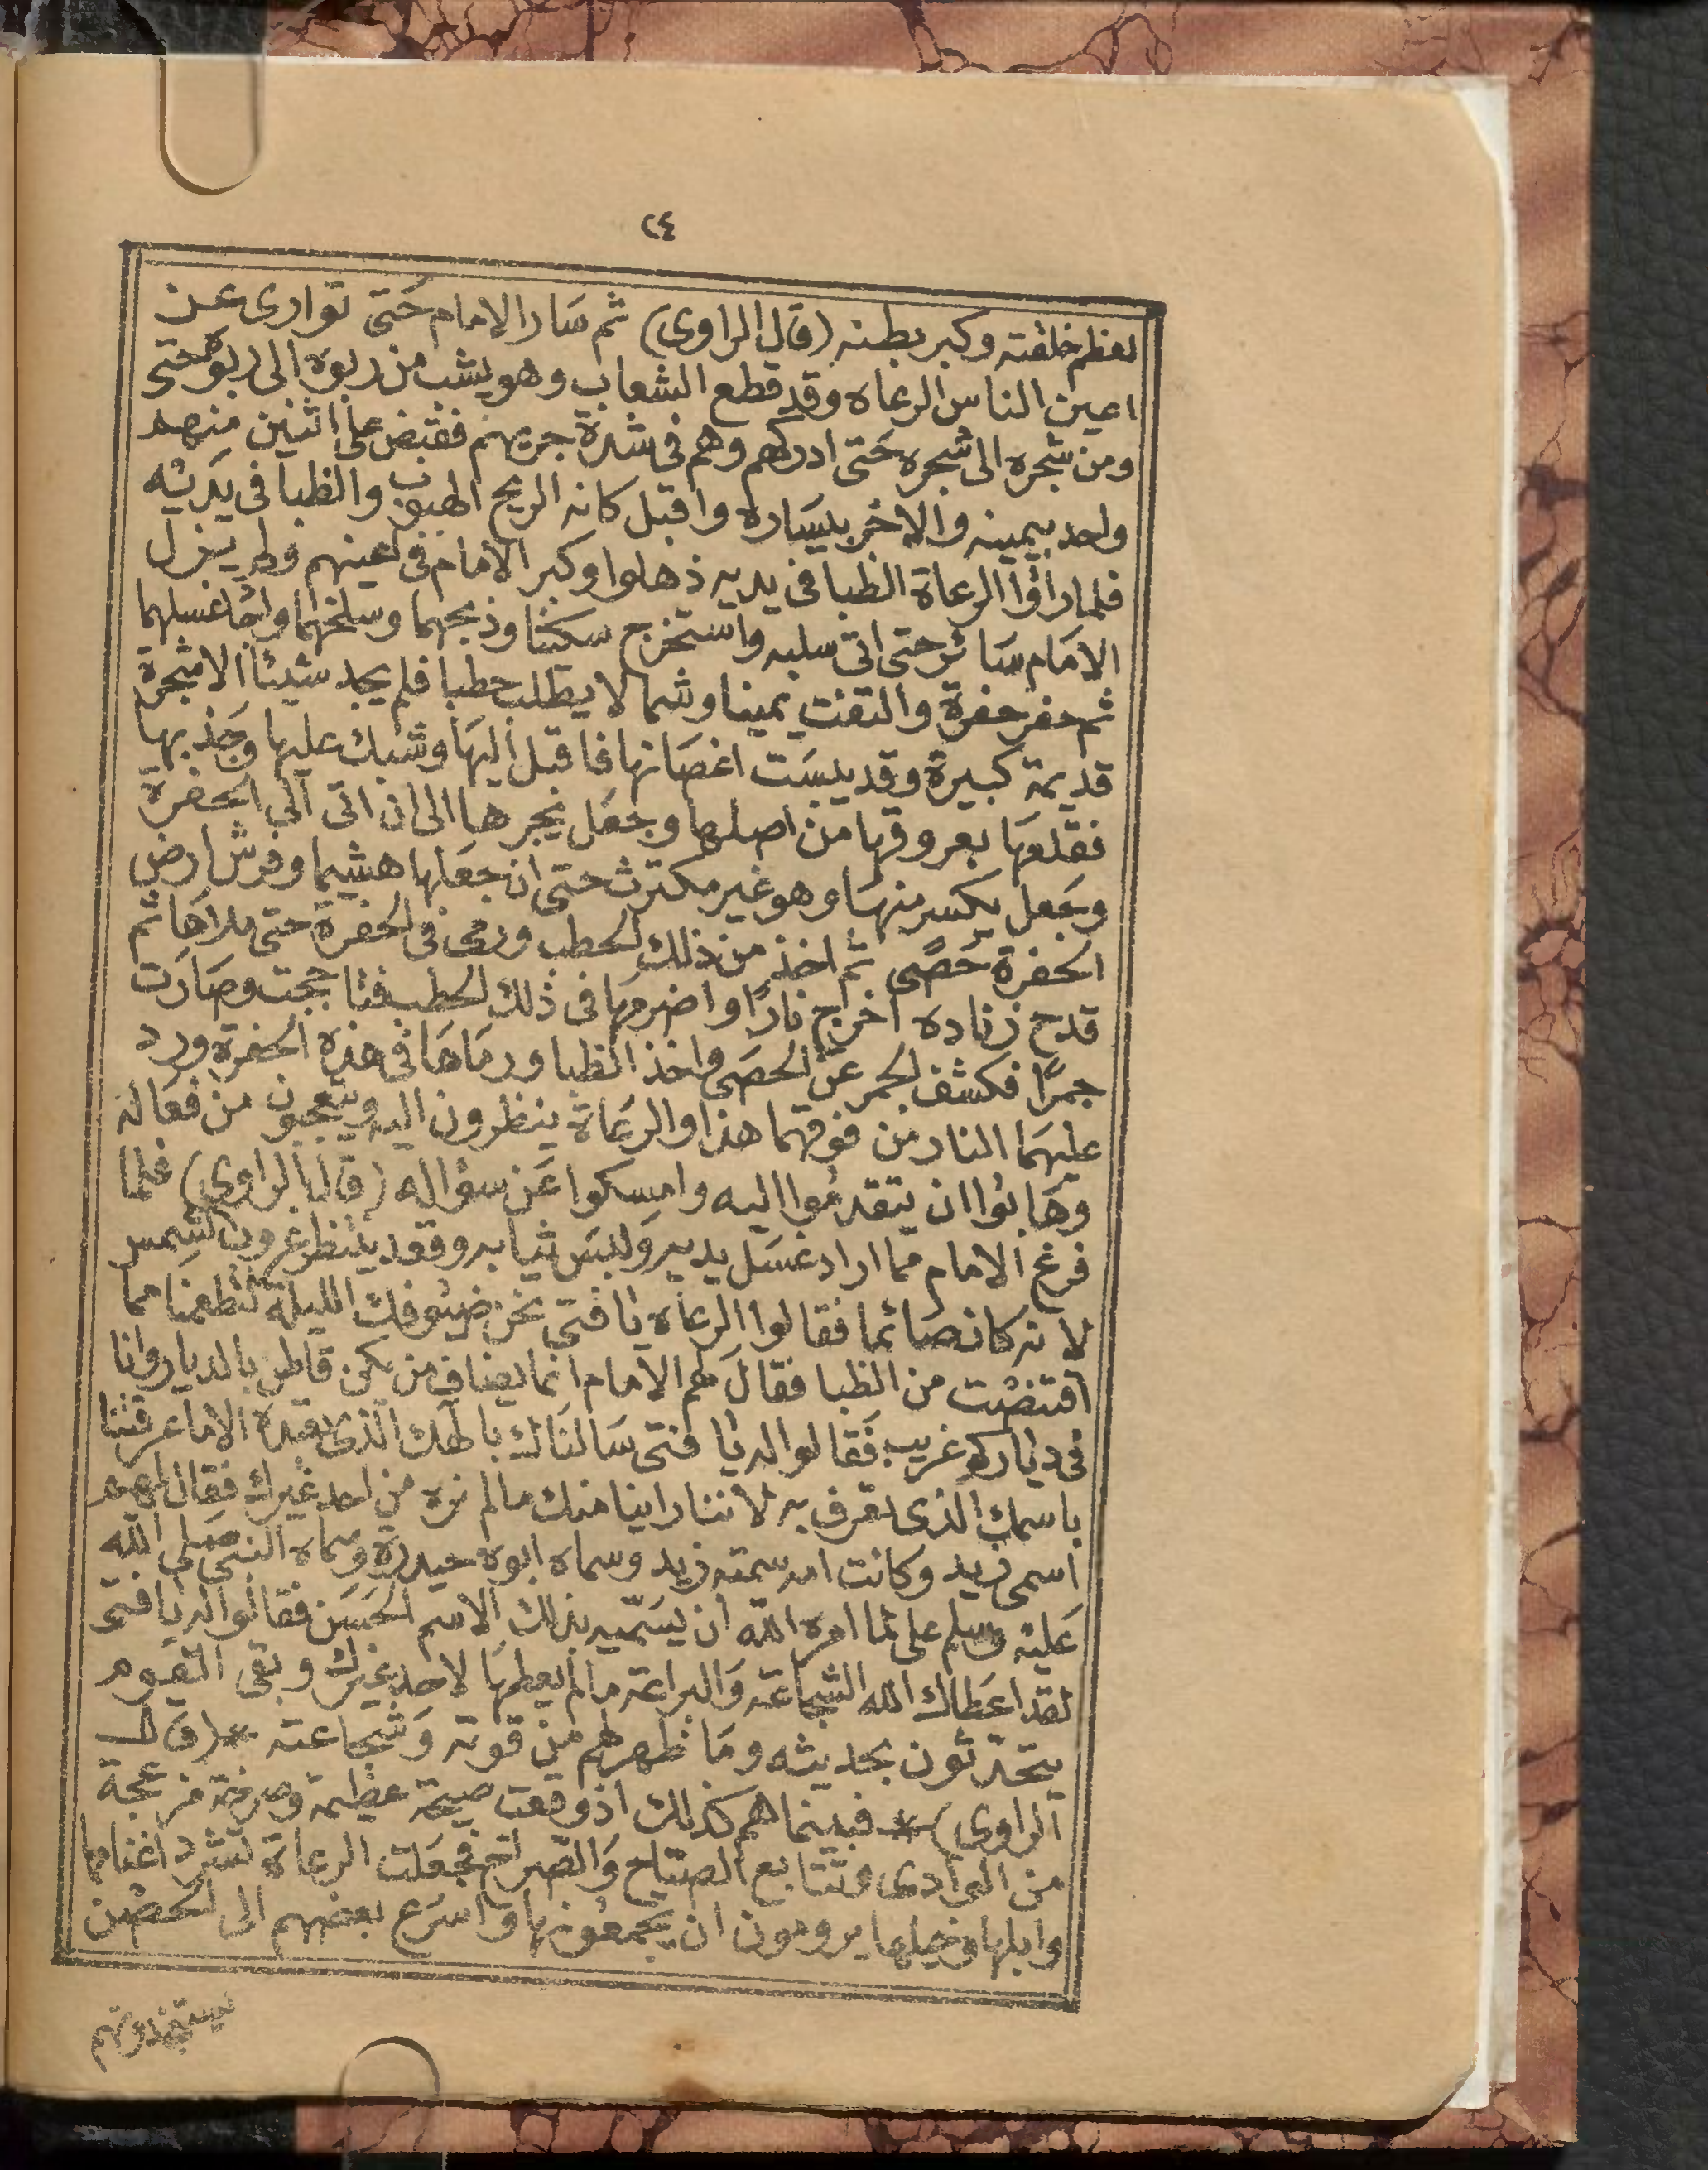 ٢٤
لعظم خلقته وكبر بطنه (قال الراوى) ثم سَار الامام حَتى توارى عن
اعين الناس الرعاه وقد قطع الشعاب وهو يشب من ربوه الى ربوة حتى
ومن شجره الى شجره حَتى ادركهم وهم فى شدة جريهم فقبض على اثنين منهم
واحد بيمينه والاخر بيسَاره واقبل كانه الريح الهبوب والظبا فى يَديْه
فلما رأوا الرعاة الظبا فى يديه ذهلوا وكبر الامام فى اعينهم ولم يزل
الامَام سَائر حتى اتى سلبه واستخرج سكينا وذبحهما وسلخهما واجَا غسلهما
ثم حفر حفرة والتفت يمينا وشمالا يطلب حطبا فلم يجد شيئا الا شجرة
قديمة كبيرة وقد يبسَت اغصَانها فاقبل اليهَا وشبك عليها وجَذبها
فقلعهَا بعروقها من اصلها وجعَل يجرها الى ان اتى الى الحفرة
وجَعل يكسر منهَا وهو غير مكترث حتى ان جعَلها هشيما وفرش ارض
الحفرة حَصًى ثم اخذ من ذلك الحطب ورمى فى الحفرة حتى ملاهَا ثم
قدح زناده اخرج نارًا واضرمهَا فى ذلك الحطب فتاججت وصَارَت
جمرًا فكشف الجمر عن الحصَى واخذ الظبا ورمَاهَا فى هذه الحفرة ورد
عليهمَا النار من فوقهما هذا والرعَاة ينظرون اليه ويتعجبون من فعَاله
وهَابوا ان يتقدمُوا اليه وامسكوا عَن سؤاله (قال الراوى) فلما
فرغ الامام مما اراد غسَل يديه وَلبسَ ثيابه وقعد ينتظر غروب الشمس
لانه كان صَائما فقالوا الرعاه يا فتى نحن ضيُوفك الليلة لتطعمنا مما
اقتنصْت من الظبا فقالَ لهم الامام انما يضاف من يكن قاطن بالديار وانا
فى دياركم غريب فَقالوا له يا فتى سَالنَاك بالهك الذى تعبده الا ما عرفتنا
باسمك الذى تعرف به لاننا راينا منك مالم نره من احد غيرك فقال لهم
اسمى زيد وكانت امه سمته زيد وسماه ابوه حيدرة وسماه النبى صَلى الله
عَليه وسلم على لما امره الله ان يسَمّيه بذلك الاسم الحَسَن فقالوا له يا فتى
لقد اعَطاك الله الشجاعة وَالبراعة مالم يعطهَا لاحد غيرك وبقى القوم
يتحدّثون بحديثه ومَا ظهر لهم من قوته وَشجاعته * (قال
الراوى) * فبينما هم كذلك اذ وقعت صيحة عظيمة وصرخة مزعجة
من الوادى وتتابع الصيّاح وَالصّراخ فجعَلت الرعاة تشرد اغنامها
وابلها وخيلها يرومون ان يجمعُونها واسرَع بعضهم الى الحصْن
يستنجدونهم